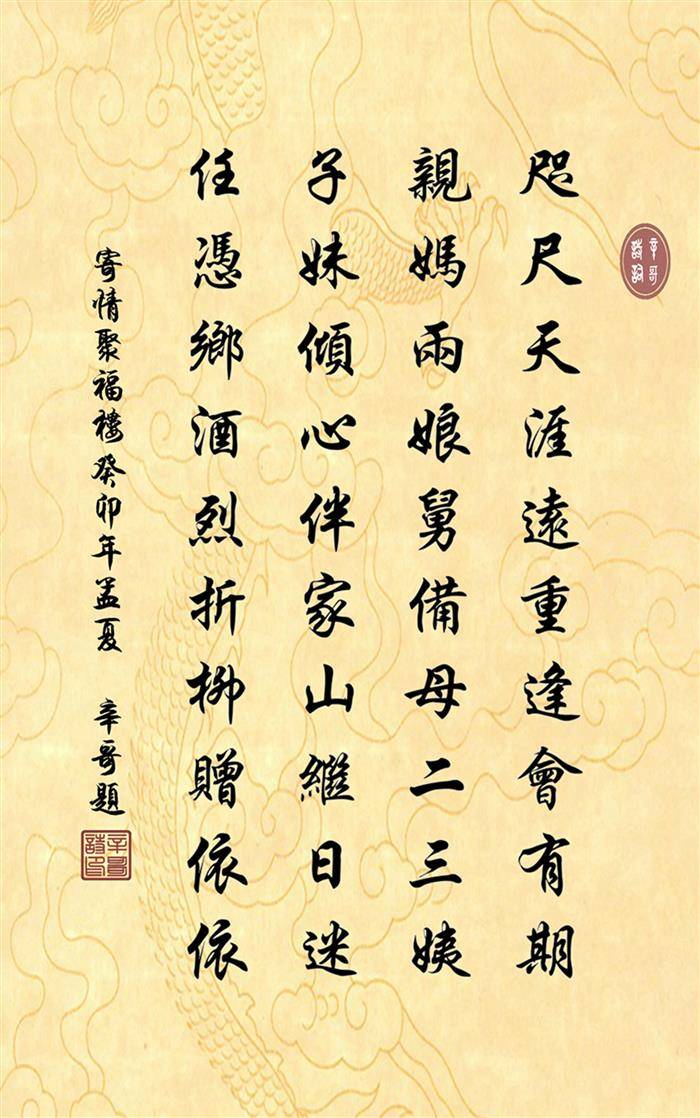 辛哥
诗詞
咫尺天涯遠重逢會有期
親媽兩娘舅備母二三姨
子妹傾心伴家山繼日迷
任憑鄉酒烈折柳贈依依
寄情聚福樓癸卯年孟夏 辛哥題
辛哥
詩印